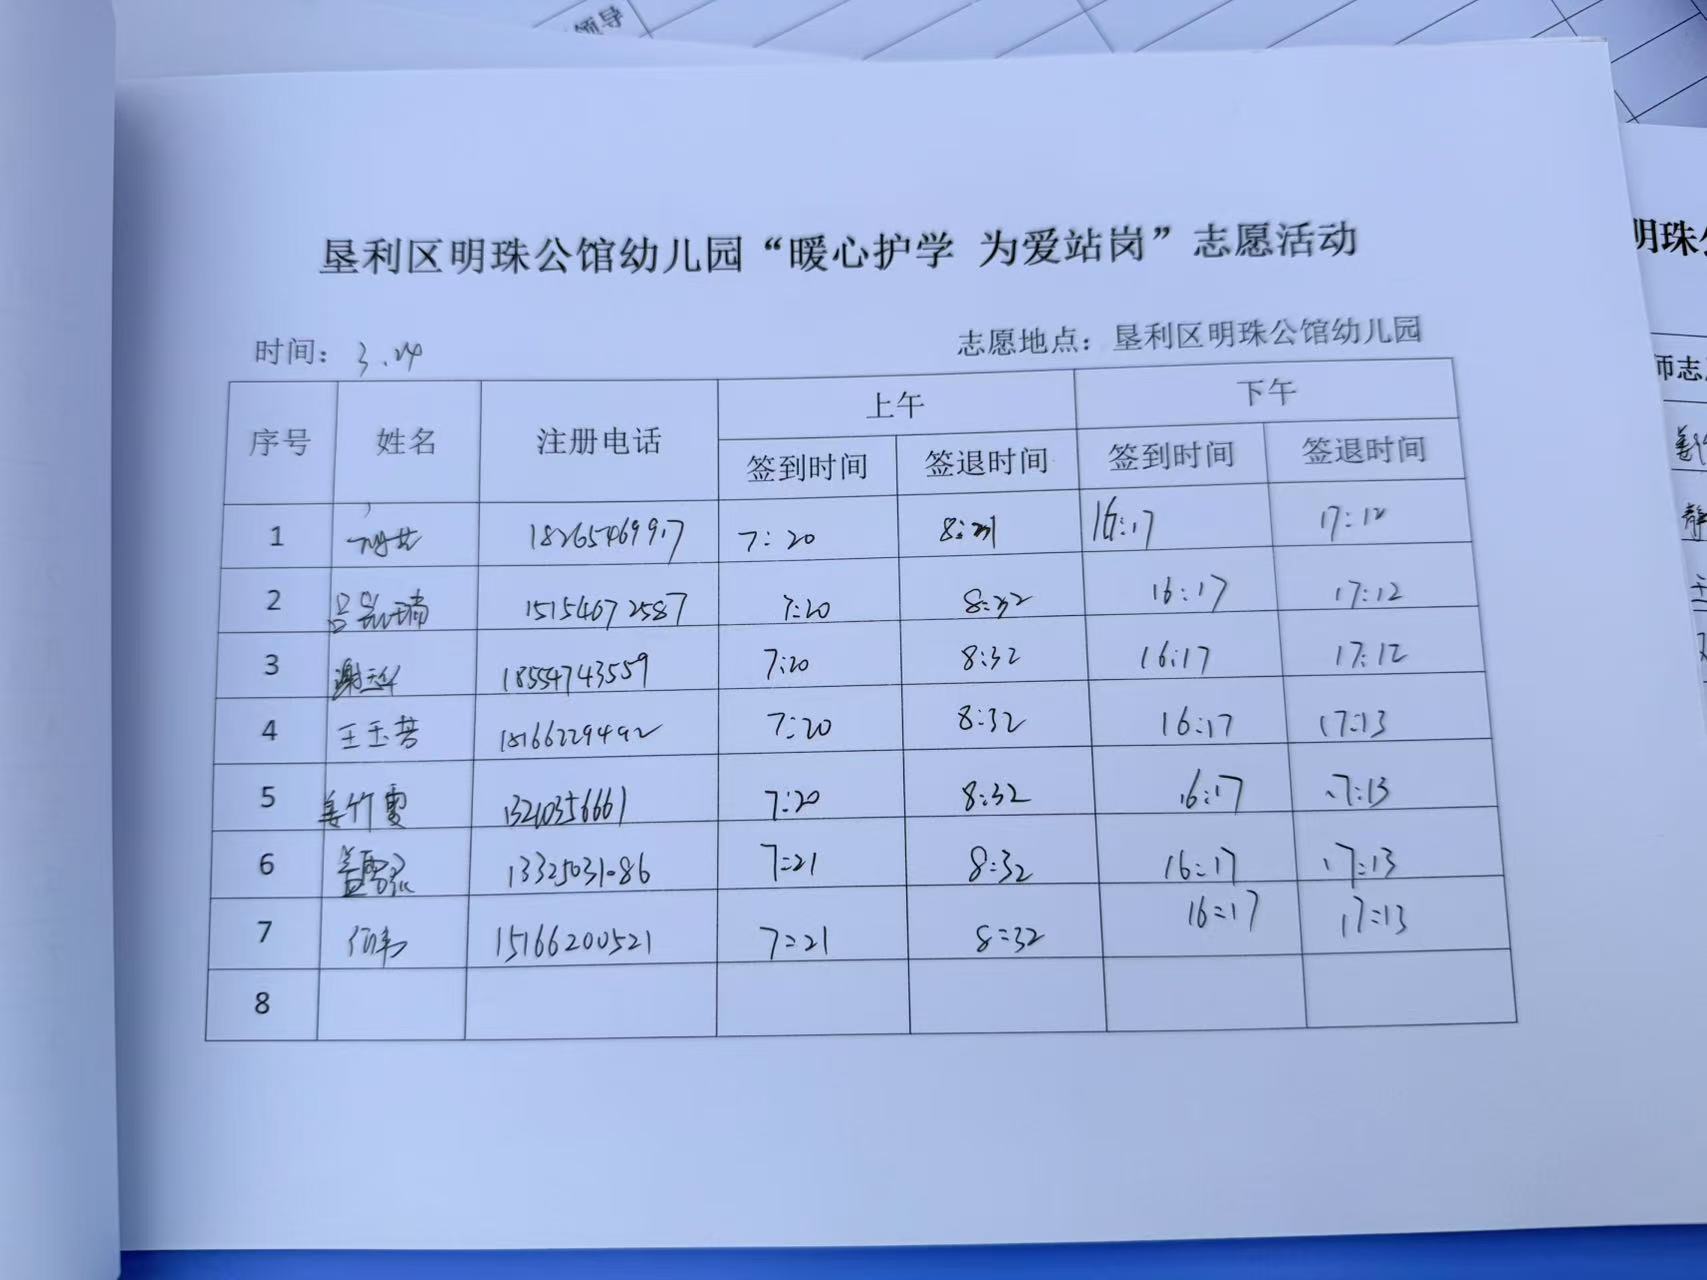 领导
垦利区明珠公馆幼儿园“暖心护学 为爱站岗”志愿活动
明珠
时间：3.24
志愿地点：垦利区明珠公馆幼儿园
师志
序号 姓名 注册电话 上午 下午
签到时间 签退时间 签到时间 签退时间
1 7:20 16:17 17:12
2 15154672587 7:20 8:32 16:17 17:12
3 18554743559 7:20 8:32 16:17 17:12
4 王玉芳 15166229492 7:20 8:32 16:17 17:13
5 姜竹雪 13210356661 7:20 8:32 16:17 17:13
6 7:21 8:32 16:17 17:13
7 15166200521 7:21 8:32 16:17 17:13
8